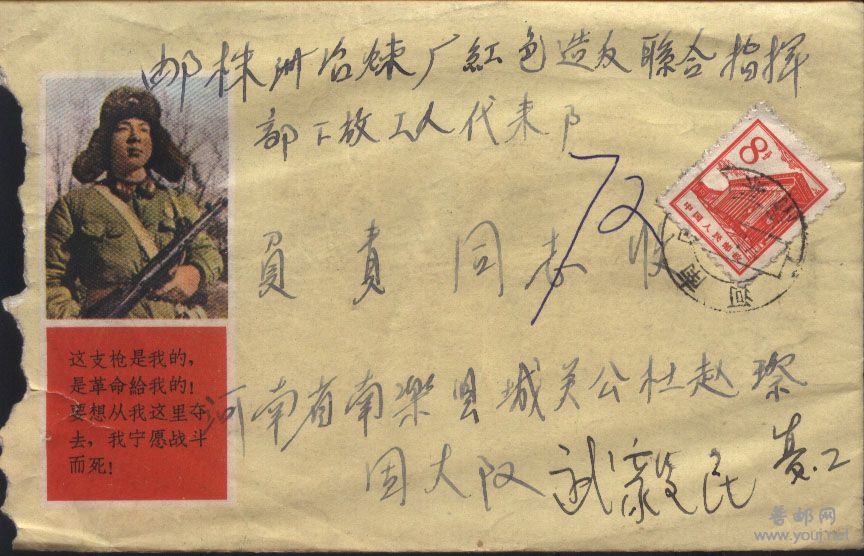 邮株洲冶炼厂紅色造反聯合指挥
部下放工人代表
負責同志收
8分
中国人民邮政
河南
这支枪是我的，
是革命給我的！
要想从我这里夺
去，我宁愿战斗
而死！
河南省南樂县城关公社赵
固大队 武毅民
善邮网
www.youj.net